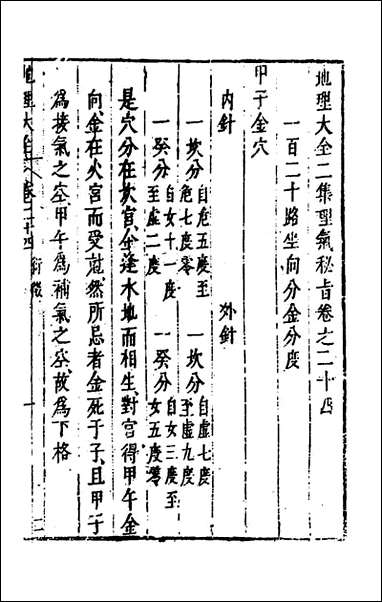 地理大全二集理氣秘旨卷之二十四
一百二十路坐向分金分度
甲子金穴
内針
外針
一坎分 自危五度至
危七度零
一坎分 自虚七度
至虚九度
一癸分 自女十一度
至虚二度
一癸分 自女三度至
女五度零
是穴分在坎宫金逢水地而相生對宫得甲午金
向金在火宫而受尅然所忌者金死于子且甲子
為接氣之穴甲午為補氣之穴故為下格
地理大全 卷二十四 衍微 一